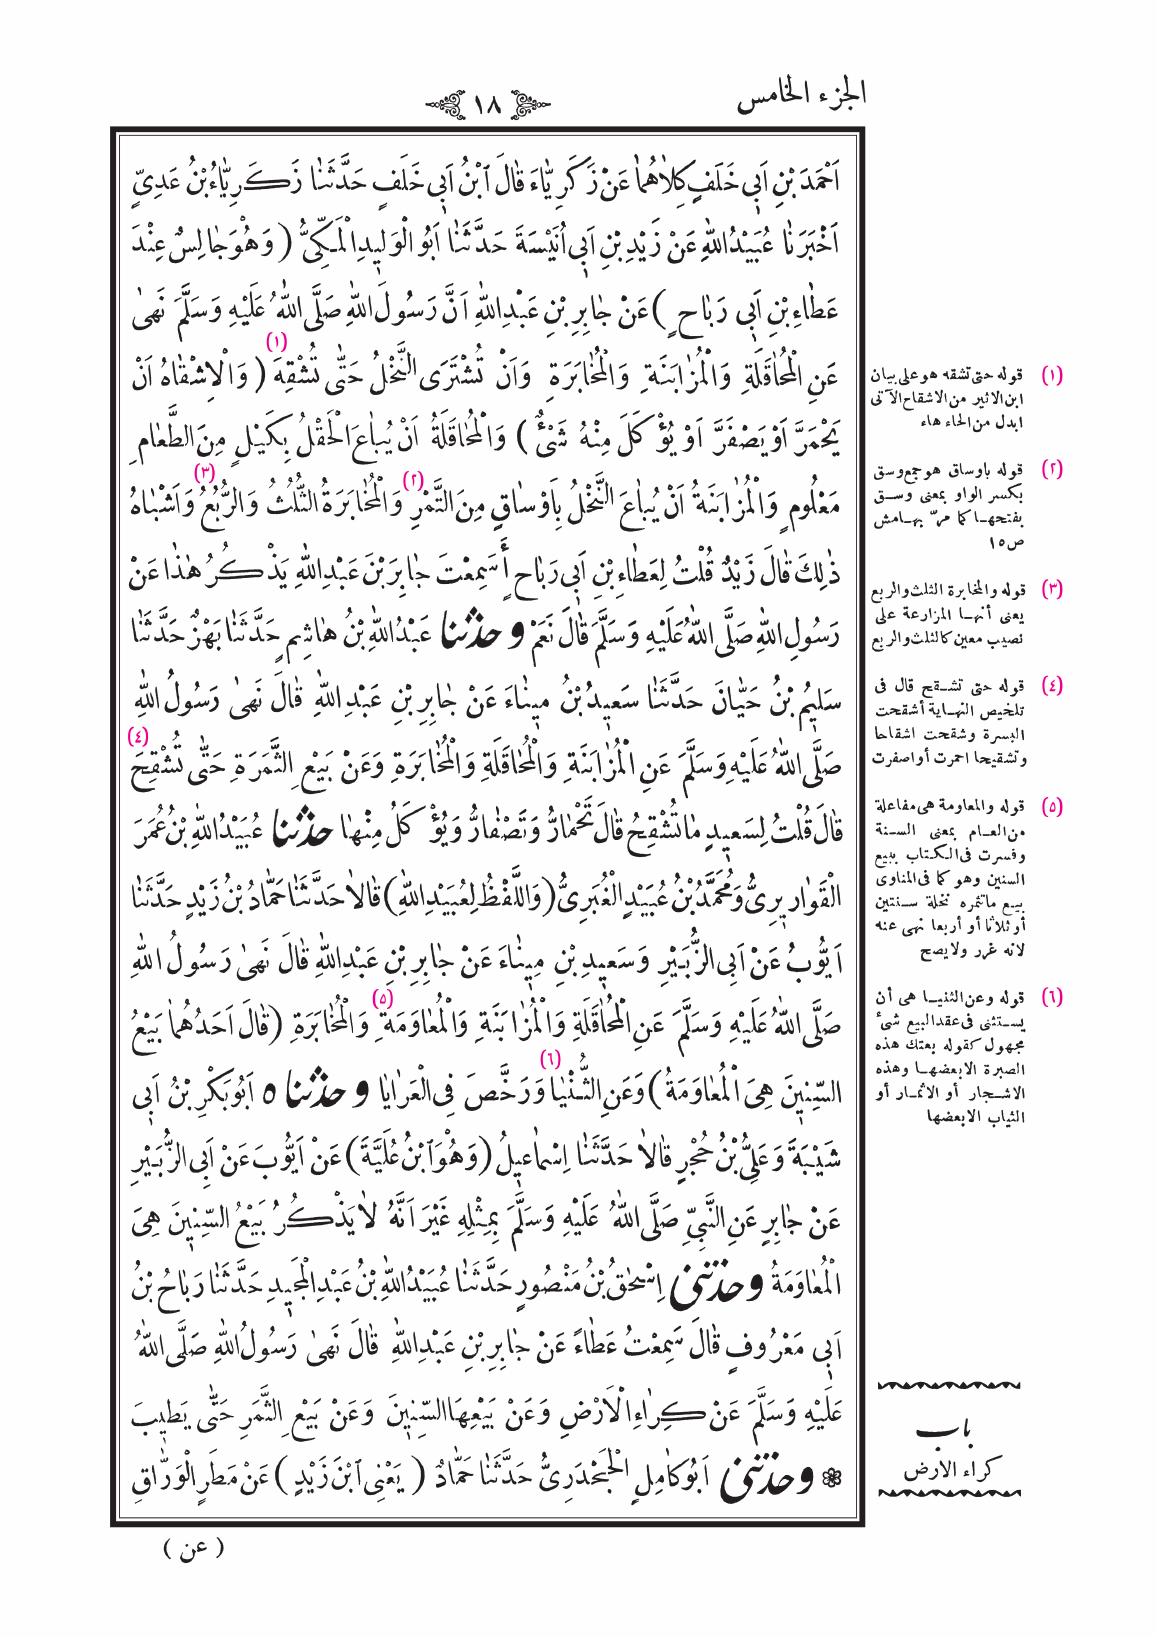 الجزء الخامس
١٨
اَحْمَدَ بْنِ اَبٖى خَلَفٍ كِلاٰهُمٰا عَنْ زَكَرِيّٰاءَ قٰالَ ٱبْنُ اَبٖى خَلَفٍ حَدَّثَنٰا زَكَرِيّٰاءُ بْنُ عَدِىٍّ
اَخْبَرَنٰا عُبَيْدُاللهِ عَنْ زَيْدِ بْنِ اَبٖى اُنَيْسَةَ حَدَّثَنٰا اَبُو الْوَلٖيدِ الْمَكِّىُّ ( وَهُوَ جٰالِسٌ عِنْدَ
عَطٰاءِ بْنِ اَبٖى رَبٰاحٍ ) عَنْ جٰابِرِ بْنِ عَبْدِاللهِ اَنَّ رَسُولَ اللهِ صَلَّى اللهُ عَلَيْهِ وَسَلَّمَ نَهٰى
عَنِ الْمُحٰاقَلَةِ وَالْمُزٰابَنَةِ وَالْمُخٰابَرَةِ وَاَنْ تُشْتَرَى النَّخْلُ حَتّٰى تُشْقِهَ (١) ( وَالْاِشْقٰاهُ اَنْ
يَحْمَرَّ اَوْ يَصْفَرَّ اَوْ يُؤْكَلَ مِنْهُ شَىْءٌ ) وَالْمُحٰاقَلَةُ اَنْ يُبٰاعَ الْحَقْلُ بِكَيْلٍ مِنَ الطَّعٰامِ
مَعْلُومٍ وَالْمُزٰابَنَةُ اَنْ يُبٰاعَ النَّخْلُ بِاَوْسٰاقٍ مِنَ التَّمْرِ (٢) وَالْمُخٰابَرَةُ الثُّلُثُ وَالرُّبُعُ (٣) وَاَشْبٰاهُ
ذٰلِكَ قٰالَ زَيْدٌ قُلْتُ لِعَطٰاءِ بْنِ اَبٖى رَبٰاحٍ أَسَمِعْتَ جٰابِرَ بْنَ عَبْدِاللهِ يَذْكُرُ هٰذٰا عَنْ
رَسُولِ اللهِ صَلَّى اللهُ عَلَيْهِ وَسَلَّمَ قٰالَ نَعَمْ و حدثنا عَبْدُاللهِ بْنُ هٰاشِمٍ حَدَّثَنٰا بَهْزٌ حَدَّثَنٰا
سَلٖيمُ بْنُ حَيّٰانَ حَدَّثَنٰا سَعٖيدُ بْنُ مٖينٰاءَ عَنْ جٰابِرِ بْنِ عَبْدِاللهِ قٰالَ نَهٰى رَسُولُ اللهِ
صَلَّى اللهُ عَلَيْهِ وَسَلَّمَ عَنِ الْمُزٰابَنَةِ وَالْمُحٰاقَلَةِ وَالْمُخٰابَرَةِ وَعَنْ بَيْعِ الثَّمَرَةِ حَتّٰى تُشْقِحَ (٤)
قٰالَ قُلْتُ لِسَعٖيدٍ مٰا تُشْقِحُ قٰالَ تَحْمٰارُّ وَتَصْفٰارُّ وَيُؤْكَلُ مِنْهٰا حدثنا عُبَيْدُاللهِ بْنُ عُمَرَ
الْقَوٰارٖيرِىُّ وَمُحَمَّدُ بْنُ عُبَيْدٍ الْغُبَرِىُّ ( وَاللَّفْظُ لِعُبَيْدِاللهِ ) قٰالاٰ حَدَّثَنٰا حَمّٰادُ بْنُ زَيْدٍ حَدَّثَنٰا
اَيُّوبُ عَنْ اَبِى الزُّبَيْرِ وَسَعٖيدِ بْنِ مٖينٰاءَ عَنْ جٰابِرِ بْنِ عَبْدِاللهِ قٰالَ نَهٰى رَسُولُ اللهِ
صَلَّى اللهُ عَلَيْهِ وَسَلَّمَ عَنِ الْمُحٰاقَلَةِ وَالْمُزٰابَنَةِ وَالْمُعٰاوَمَةِ (٥) وَالْمُخٰابَرَةِ ( قٰالَ اَحَدُهُمٰا بَيْعُ
السِّنٖينَ هِىَ الْمُعٰاوَمَةُ ) وَعَنِ الثُّنْيٰا (٦) وَرَخَّصَ فِى الْعَرٰايٰا و حدثنا ه اَبُوبَكْرِ بْنُ اَبٖى
شَيْبَةَ وَعَلِىُّ بْنُ حُجْرٍ قٰالاٰ حَدَّثَنٰا اِسْمٰاعٖيلُ ( وَهُوَ ٱبْنُ عُلَيَّةَ ) عَنْ اَيُّوبَ عَنْ اَبِى الزُّبَيْرِ
عَنْ جٰابِرٍ عَنِ النَّبِىِّ صَلَّى اللهُ عَلَيْهِ وَسَلَّمَ بِمِثْلِهِ غَيْرَ اَنَّهُ لاٰ يَذْكُرُ بَيْعُ السِّنٖينَ هِىَ
الْمُعٰاوَمَةُ و حدثنى اِسْحٰقُ بْنُ مَنْصُورٍ حَدَّثَنٰا عُبَيْدُاللهِ بْنُ عَبْدِالْمَجٖيدِ حَدَّثَنٰا رَبٰاحُ بْنُ
اَبٖى مَعْرُوفٍ قٰالَ سَمِعْتُ عَطٰاءً عَنْ جٰابِرِ بْنِ عَبْدِاللهِ قٰالَ نَهٰى رَسُولُ اللهِ صَلَّى اللهُ
عَلَيْهِ وَسَلَّمَ عَنْ كِرٰاءِ الْاَرْضِ وَعَنْ بَيْعِهَا السِّنٖينَ وَعَنْ بَيْعِ الثَّمَرِ حَتّٰى يَطٖيبَ
و حدثنى اَبُو كٰامِلٍ الْجَحْدَرِىُّ حَدَّثَنٰا حَمّٰادٌ ( يَعْنِى ٱبْنَ زَيْدٍ ) عَنْ مَطَرٍ الْوَرّٰاقِ
( عن )
(١) قوله حتى تشقه هو على بيان
ابن الاثير من الاشقاح الآتى
ابدل من الحاء هاء
(٢) قوله باوساق هو جمع وسق
بكسر الواو بمعنى وسق
بفتحها كما مرّ بهامش
ص١٥
(٣) قوله والمخابرة الثلث والربع
يعنى أنها المزارعة على
نصيب معين كالثلث والربع
(٤) قوله حتى تشقح قال فى
تلخيص النهاية أشقحت
البسرة وشقحت اشقاحا
وتشقيحا احمرت أو اصفرت
(٥) قوله والمعاومة هى مفاعلة
من العام بمعنى السنة
وفسرت فى الكتاب ببيع
السنين وهو كما فى المناوى
بيع ماتثمره نخلة سنتين
أو ثلاثا أو أربعا نهى عنه
لانه غرر ولا يصح
(٦) قوله وعن الثنيا هى أن
يستثنى فى عقد البيع شىء
مجهول كقوله بعتك هذه
الصبرة الا بعضها وهذه
الاشجار أو الاثمار أو
الثياب الا بعضها
باب
كراء الارض